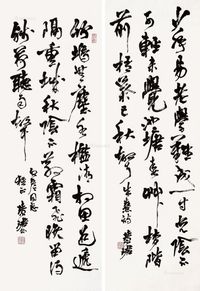 少年易老學難成一寸光陰不
可輕未覺池塘春草夢階
前梧葉已秋聲 朱熹詩
竹塢無塵水檻清相思迢遞
隔重城秋陰不散霜飛晚留得
枯荷聽雨聲